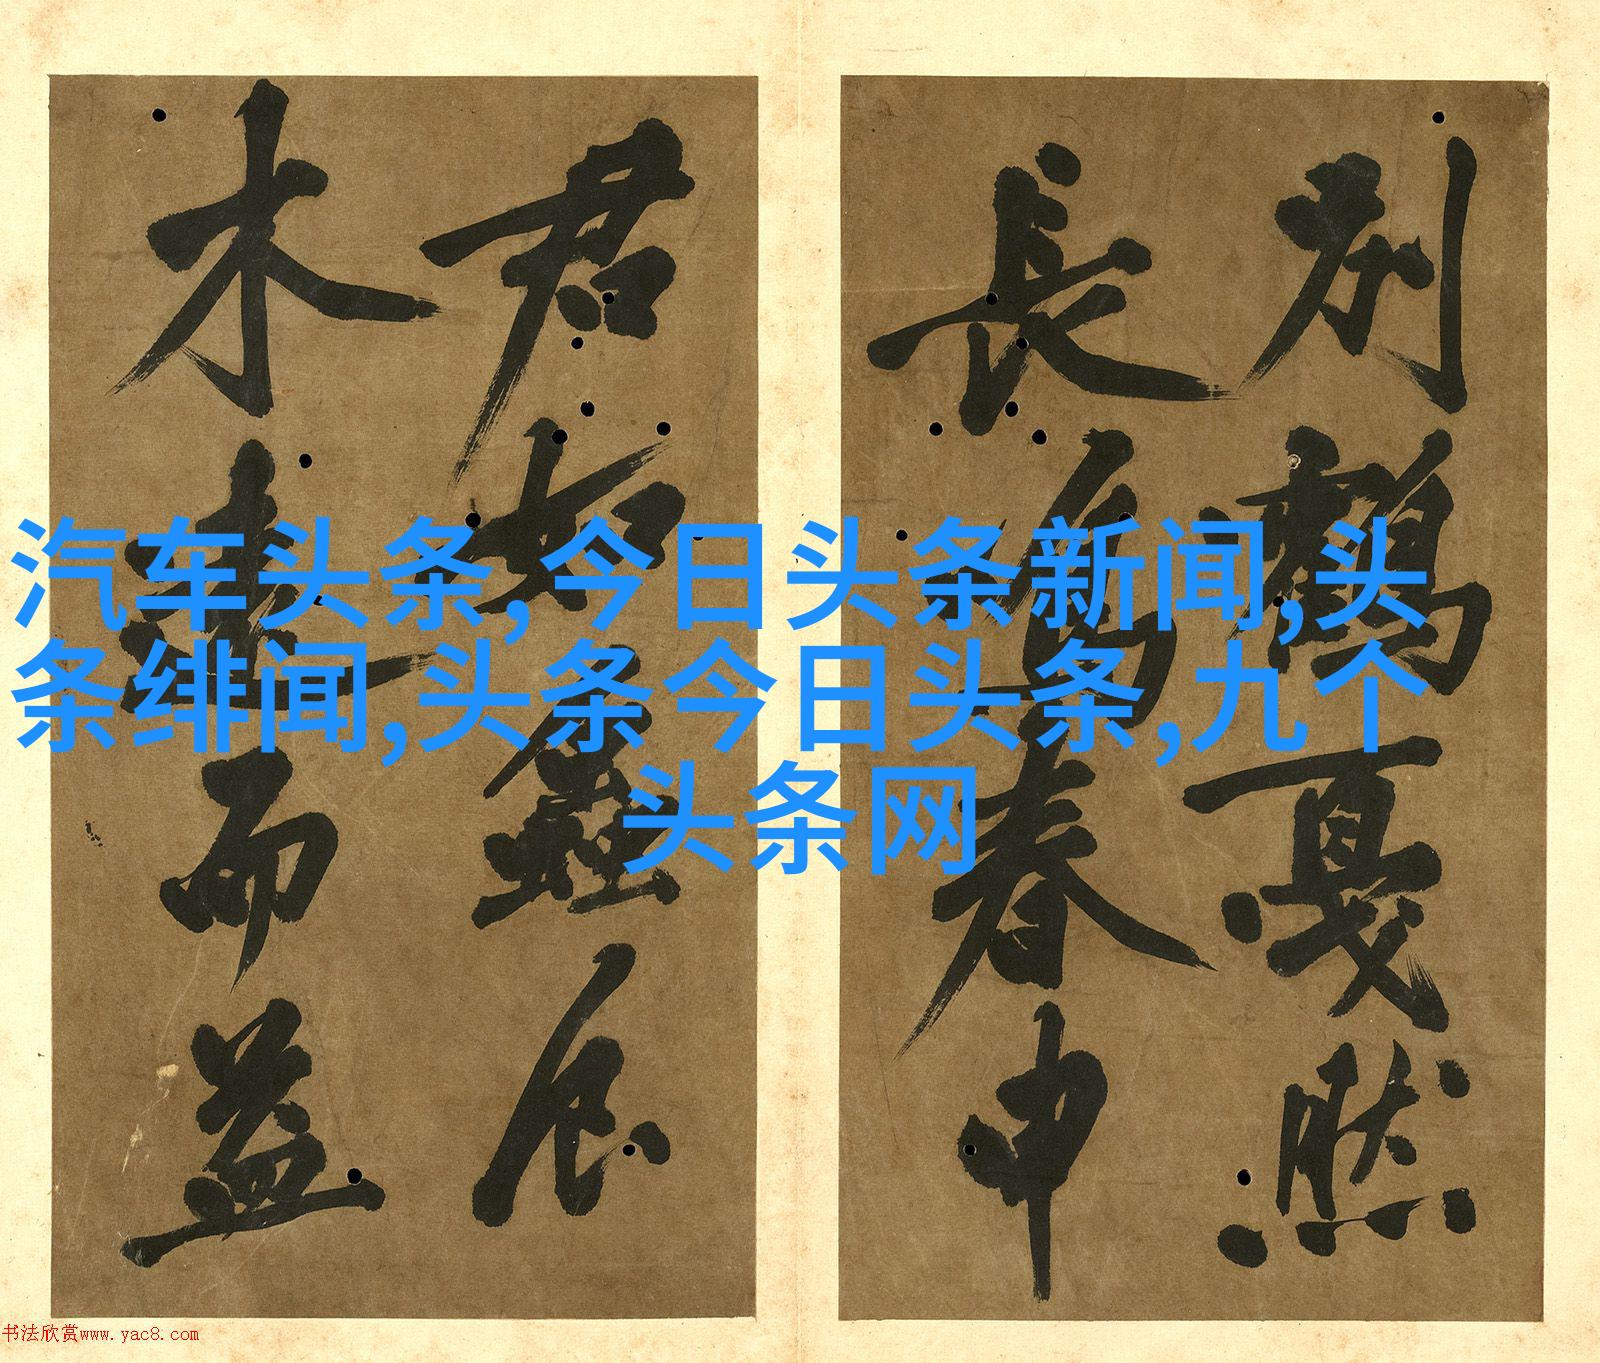 汽车头条,今日头条新闻,头
条绯闻,头条今日头条,九个
头条网
別鶴戛然
長春申
君如
木而益
书法欣赏www.yac8.com